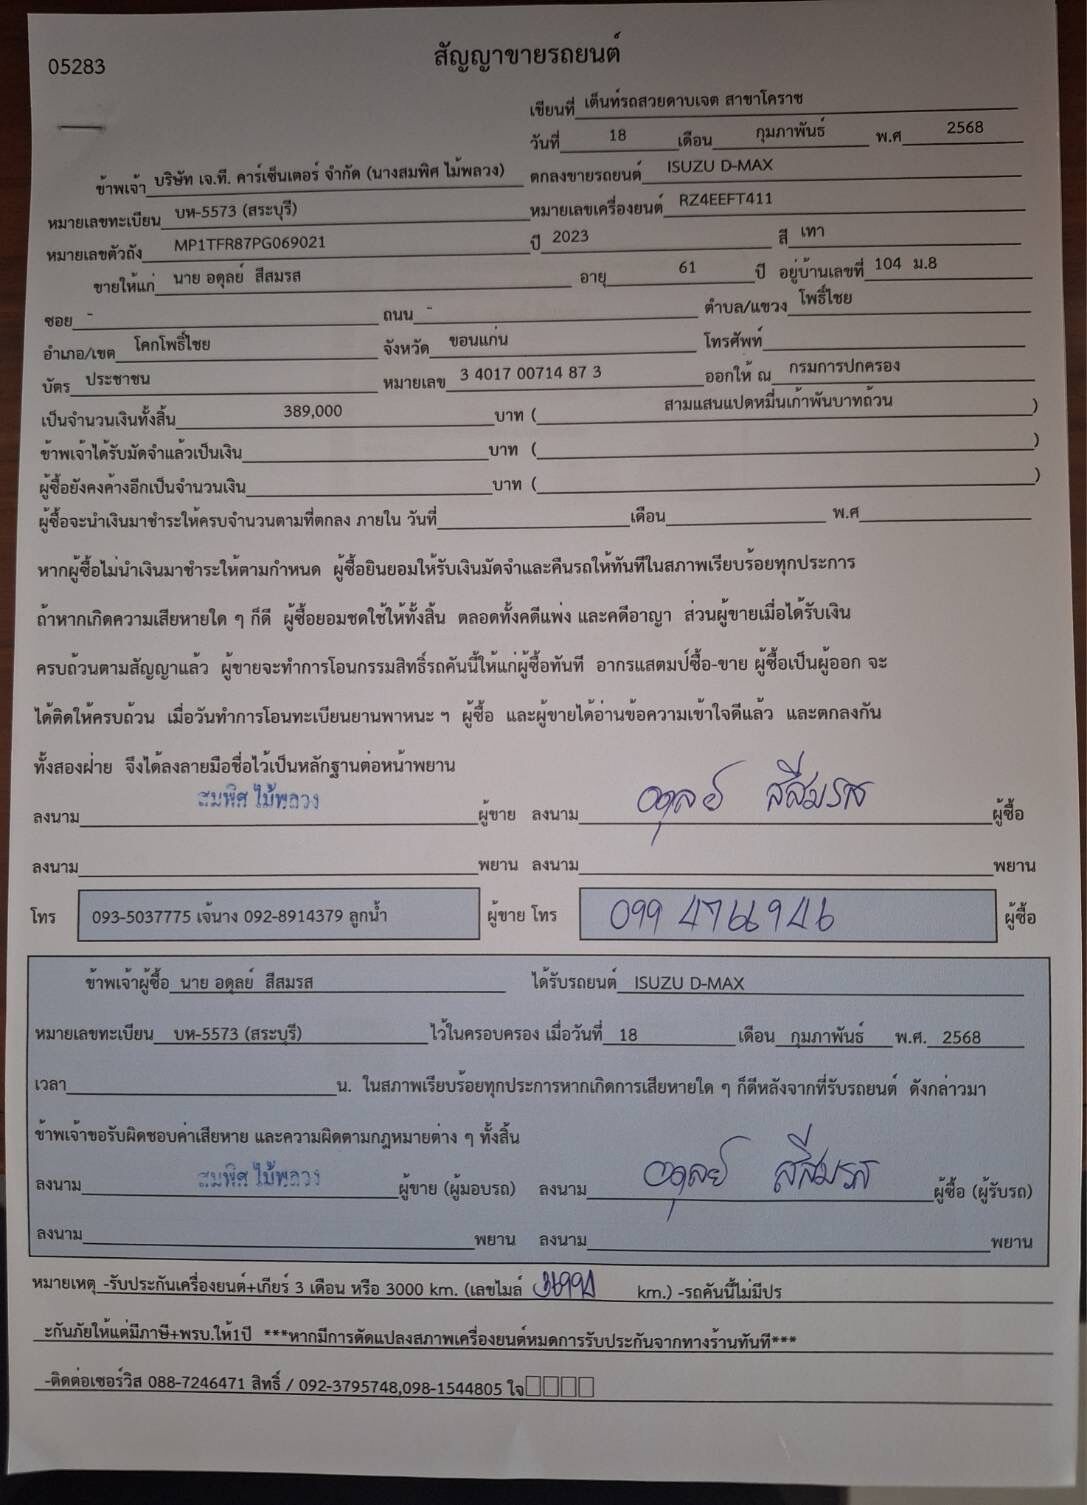 05283
สัญญาขายรถยนต์
เขียนที่ เต็นท์รถสวยดาบเจต สาขาโคราช
วันที่ 18 เดือน กุมภาพันธ์ พ.ศ 2568
ข้าพเจ้า บริษัท เจ.ที. คาร์เซ็นเตอร์ จำกัด (นางสมพิศ ไม้พลวง) ตกลงขายรถยนต์ ISUZU D-MAX
หมายเลขทะเบียน บห-5573 (สระบุรี) หมายเลขเครื่องยนต์ RZ4EEFT411
หมายเลขตัวถัง MP1TFR87PG069021 ปี 2023 สี เทา
ขายให้แก่ นาย อดุลย์ สีสมรส อายุ 61 ปี อยู่บ้านเลขที่ 104 ม.8
ซอย - ถนน - ตำบล/แขวง โพธิ์ไชย
อำเภอ/เขต โคกโพธิ์ไชย จังหวัด ขอนแก่น โทรศัพท์
บัตร ประชาชน หมายเลข 3 4017 00714 87 3 ออกให้ ณ กรมการปกครอง
เป็นจำนวนเงินทั้งสิ้น 389,000 บาท ( สามแสนแปดหมื่นเก้าพันบาทถ้วน )
ข้าพเจ้าได้รับมัดจำแล้วเป็นเงิน บาท ( )
ผู้ซื้อยังคงค้างอีกเป็นจำนวนเงิน บาท ( )
ผู้ซื้อจะนำเงินมาชำระให้ครบจำนวนตามที่ตกลง ภายใน วันที่ เดือน พ.ศ
หากผู้ซื้อไม่นำเงินมาชำระให้ตามกำหนด ผู้ซื้อยินยอมให้รับเงินมัดจำและคืนรถให้ทันทีในสภาพเรียบร้อยทุกประการ
ถ้าหากเกิดความเสียหายใด ๆ ก็ดี ผู้ซื้อยอมชดใช้ให้ทั้งสิ้น ตลอดทั้งคดีแพ่ง และคดีอาญา ส่วนผู้ขายเมื่อได้รับเงิน
ครบถ้วนตามสัญญาแล้ว ผู้ขายจะทำการโอนกรรมสิทธิ์รถคันนี้ให้แก่ผู้ซื้อทันที อากรแสตมป์ซื้อ-ขาย ผู้ซื้อเป็นผู้ออก จะ
ได้ติดให้ครบถ้วน เมื่อวันทำการโอนทะเบียนยานพาหนะ ฯ ผู้ซื้อ และผู้ขายได้อ่านข้อความเข้าใจดีแล้ว และตกลงกัน
ทั้งสองฝ่าย จึงได้ลงลายมือชื่อไว้เป็นหลักฐานต่อหน้าพยาน
ลงนาม สมพิศ ไม้พลวง ผู้ขาย ลงนาม อดุลย์ สีสมรส ผู้ซื้อ
ลงนาม พยาน ลงนาม พยาน
โทร 093-5037775 เจ้นาง 092-8914379 ลูกน้ำ ผู้ขาย โทร 099 4716946 ผู้ซื้อ
ข้าพเจ้าผู้ซื้อ นาย อดุลย์ สีสมรส ได้รับรถยนต์ ISUZU D-MAX
หมายเลขทะเบียน บห-5573 (สระบุรี) ไว้ในครอบครอง เมื่อวันที่ 18 เดือน กุมภาพันธ์ พ.ศ. 2568
เวลา น. ในสภาพเรียบร้อยทุกประการหากเกิดการเสียหายใด ๆ ก็ดีหลังจากที่รับรถยนต์ ดังกล่าวมา
ข้าพเจ้าขอรับผิดชอบค่าเสียหาย และความผิดตามกฎหมายต่าง ๆ ทั้งสิ้น
ลงนาม สมพิศ ไม้พลวง ผู้ขาย (ผู้มอบรถ) ลงนาม อดุลย์ สีสมรส ผู้ซื้อ (ผู้รับรถ)
ลงนาม พยาน ลงนาม พยาน
หมายเหตุ -รับประกันเครื่องยนต์+เกียร์ 3 เดือน หรือ 3000 km. (เลขไมล์ km.) -รถคันนี้ไม่มีปร
ะกันภัยให้แต่มีภาษี+พรบ.ให้1ปี ***หากมีการดัดแปลงสภาพเครื่องยนต์หมดการรับประกันจากทางร้านทันที***
-ติดต่อเซอร์วิส 088-7246471 สิทธิ์ / 092-3795748,098-1544805 ใจ□□□□